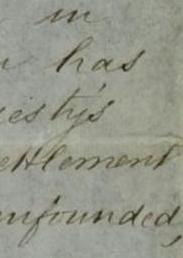 in
has
jesty's
ettlement
unfounded,